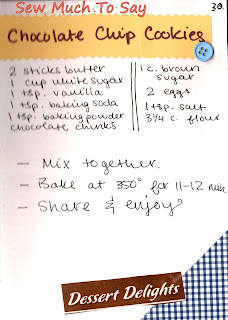 Sew Much To Say
30.
Chocolate Chip Cookies
2 sticks butter
1 cup white sugar
1 tsp. vanilla
1 tsp. baking soda
1 tsp. baking powder
chocolate chunks
1 c. brown
sugar
2 eggs
1 tsp. salt
3 1/4 c. flour
- Mix together.
- Bake at 350° for 11-12 min
- Share & enjoy
Dessert Delights